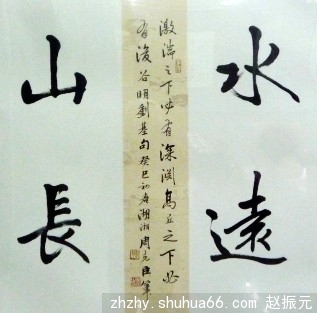 水遠
激湍之下必有深渊高丘之下必
有浚谷明劉基句癸巳初湖湘周克
山長
zhzhy.shuhua66.com 赵振元